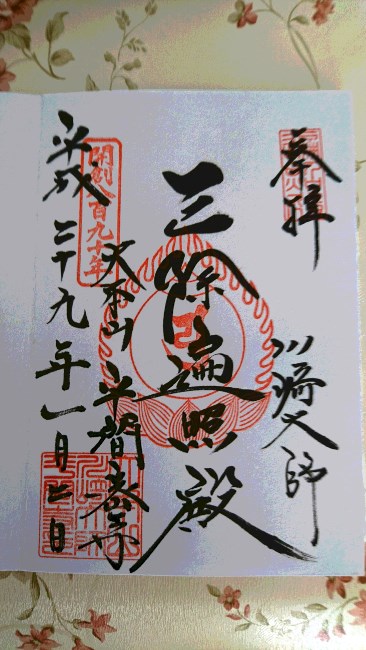 奉拝
川崎大師
厄除遍照殿
大本山 平間教寺
開創八百九十年
平成二十九年一月日